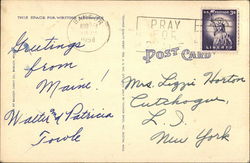 THIS SPACE FOR WRITING MESSAGES
PRAY
FOR
POST CARD
U.S. POSTAGE 3¢
LIBERTY
1958
Greetings
from
Maine!
Walter & Patricia
Towle
Mrs. Lizzie Horton
Cutchogue,
L. I.
New York